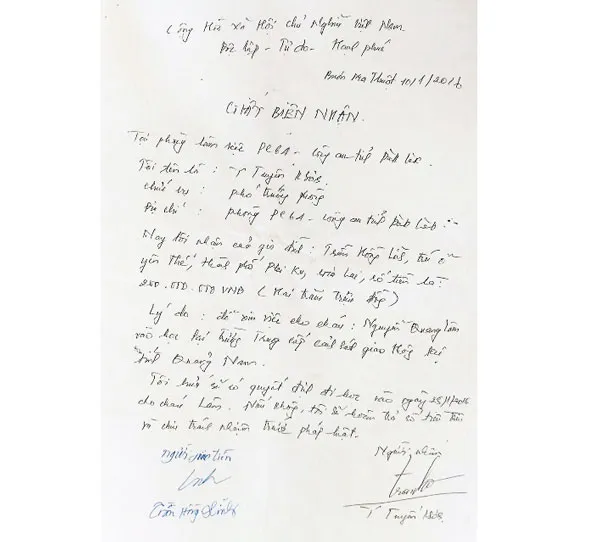 Cộng Hòa Xã Hội Chủ Nghĩa Việt Nam
Độc lập - Tự do - Hạnh phúc
Buôn Ma Thuột 10/1/2016
GIẤY BIÊN NHẬN
Tại phòng làm việc PC64 - Công an tỉnh Đắk Lắk.
Tôi tên là : Y Tuyến
Chức vụ : phó trưởng phòng
Địa chỉ : phòng PC64 - Công an tỉnh Đắk Lắk
Nay tôi nhận của gia đình : Trần Hồng, trú ở
Yên Thế, thành phố Plei Ku, Gia Lai, số tiền là:
200.000.000 VNĐ ( Hai trăm triệu đồng )
Lý do : để xin việc cho cháu : Nguyễn Quang Lâm
vào học tại trường Trung cấp cảnh sát giao thông tại
tỉnh Quảng Nam.
Tôi hứa sẽ có quyết định đi học vào ngày 25/1/2016
cho cháu Lâm. Nếu không, tôi sẽ hoàn trả số tiền trên
và chịu trách nhiệm trước pháp luật.
Người giao tiền
Người nhận
Trần Hồng
Y Tuyến